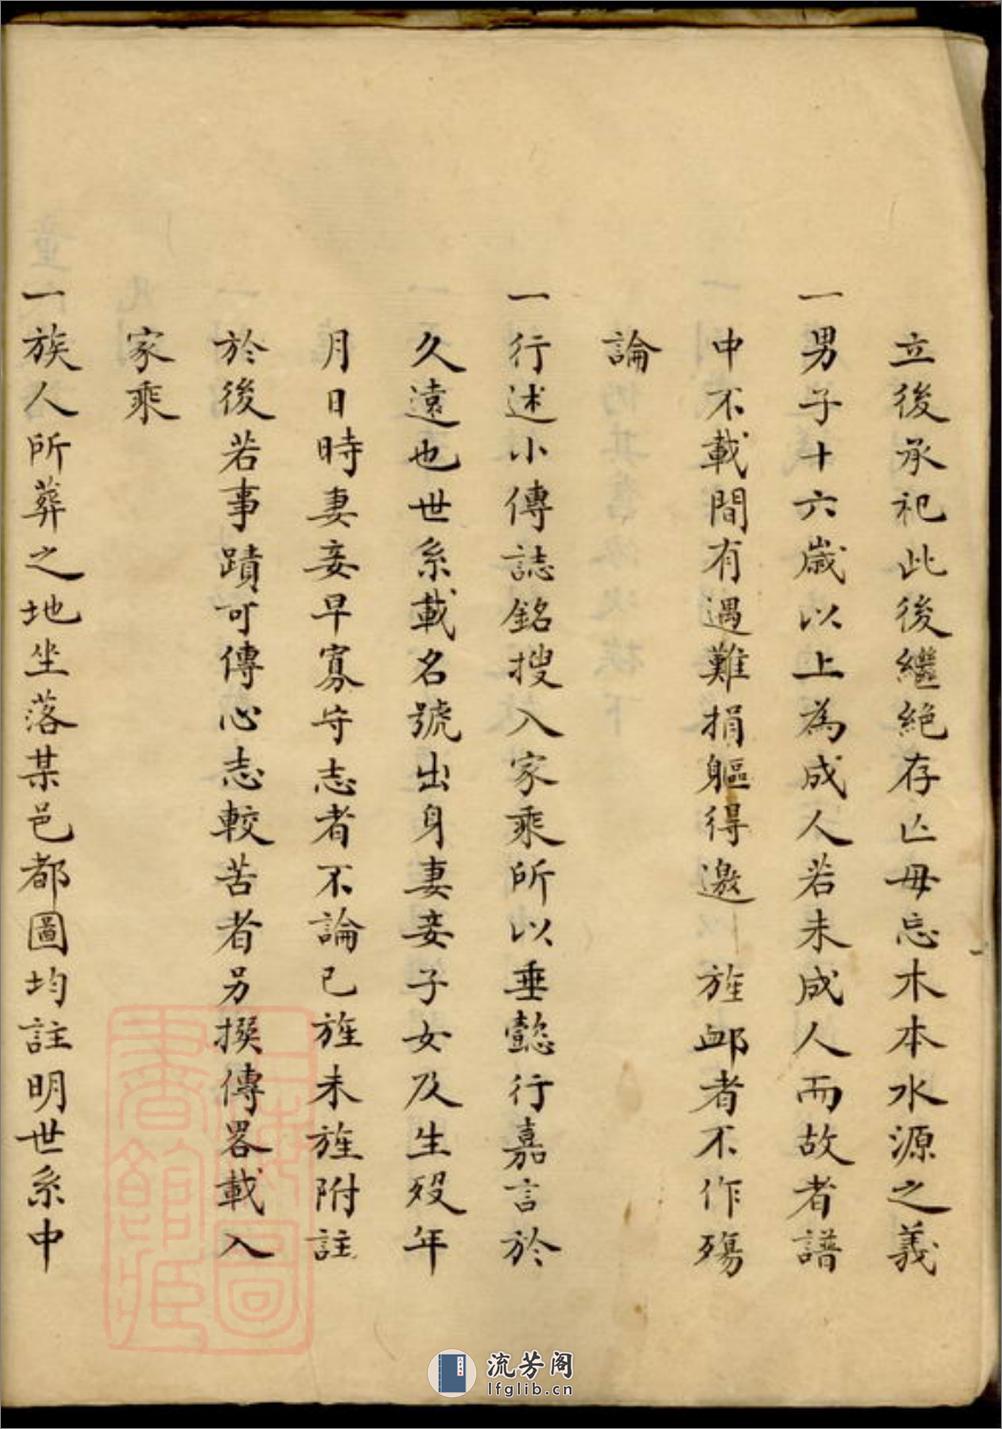 立後承祀此後繼絕存亡毋忘木本水源之義
一男子十六歲以上為成人若未成人而故者譜
中不載間有遇難捐軀得邀　旌卹者不作殤
論
一行述小傳誌銘搜入家乘所以垂懿行嘉言於
久遠也世系載名號出身妻妾子女及生歿年
月日時妻妾早寡守志者不論已旌未旌附註
於後若事蹟可傳心志較苦者另撰傳畧載入
家乘
一族人所葬之地坐落某邑都圖均註明世系中
流芳阁
lfglib.cn